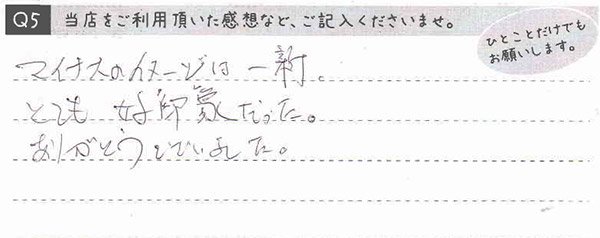 Q5 当店をご利用頂いた感想など、ご記入くださいませ。
ひとことだけでも
お願いします。
マイナスのイメージは一新。
とても好印象だった。
ありがとうございました。